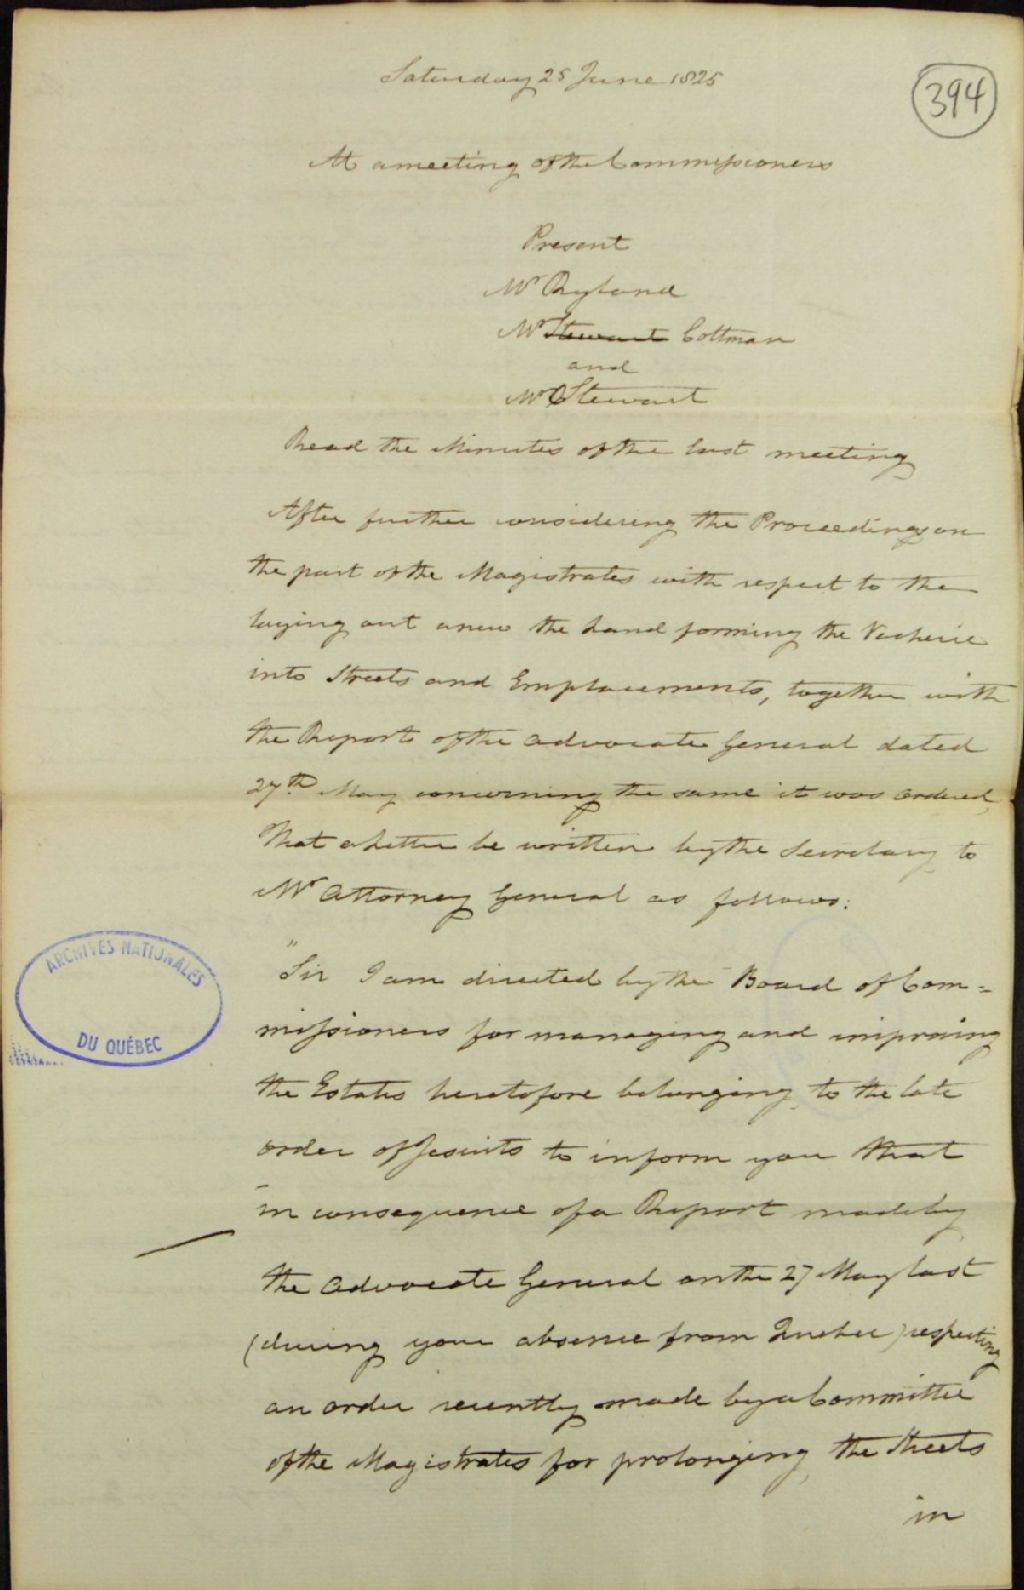 Saturday 25 June 1825
394
At a meeting of the Commissioners
Present
Mr Ryland
Mr Stewart Coltman
and
Mr Stewart
Read the Minutes of the last meeting
After further considering the Proceedings on
the part of the Magistrates with respect to the
laying out anew the Land forming the Vacherie
into Streets and Emplacements, together with
the Report of the Advocate General dated
27th May concerning the same it was ordered,
That a Letter be written by the Secretary to
Mr Attorney General as follows:
"Sir I am directed by the Board of Com=
missioners for managing and improving
the Estates heretofore belonging to the late
order of Jesuits to inform you that
in consequence of a Report made by
the Advocate General on the 27 May last
(during your absence from Quebec) respecting
an order recently made by a Committee
of the Magistrates for prolonging the Streets
in
ARCHIVES NATIONALES
DU QUÉBEC